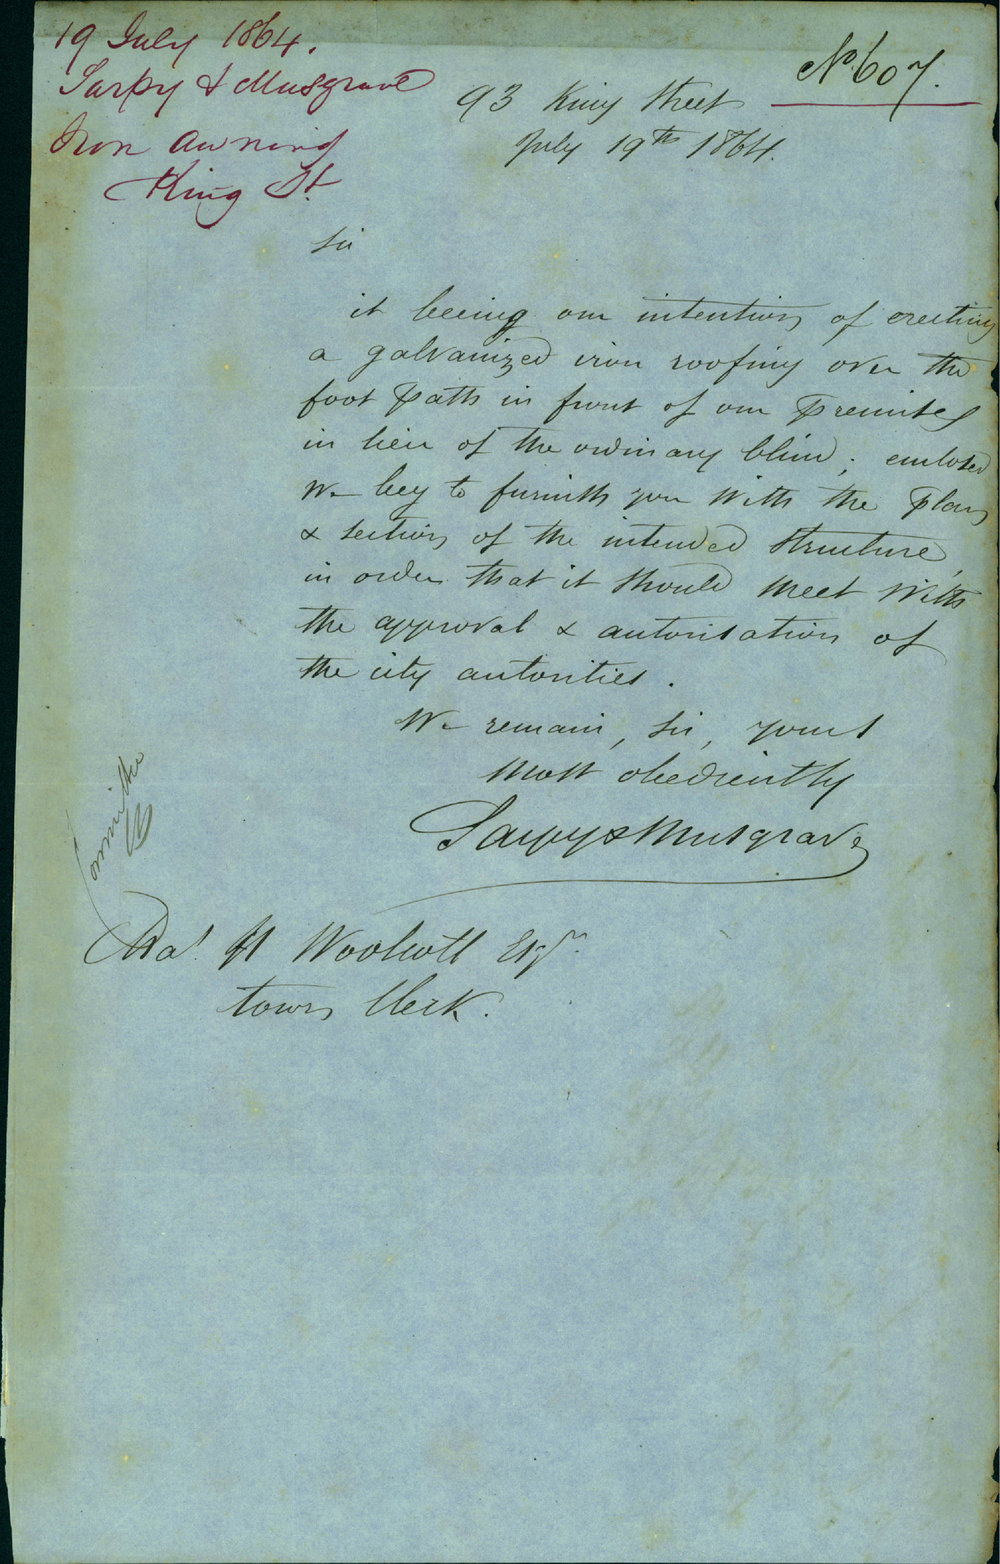 19 July 1864.
Sarpy & Musgrave
Iron awning
King St.
No. 607.
93 King Street
July 19th 1864.
Sir
it beeing our intention of erecting
a galvanized iron roofing over the
foot Path in front of our Premises
in lieu of the ordinary blind; enclosed
We beg to furnish you With the Plan
& section of the intended structure,
in order that it should meet With
the approval & autorisation of
the city autorities.
We remain, Sir, yours
Most obediently
Sarpy & Musgrave
Committee
Chas. H Woolcott Esqr.
town Clerk.